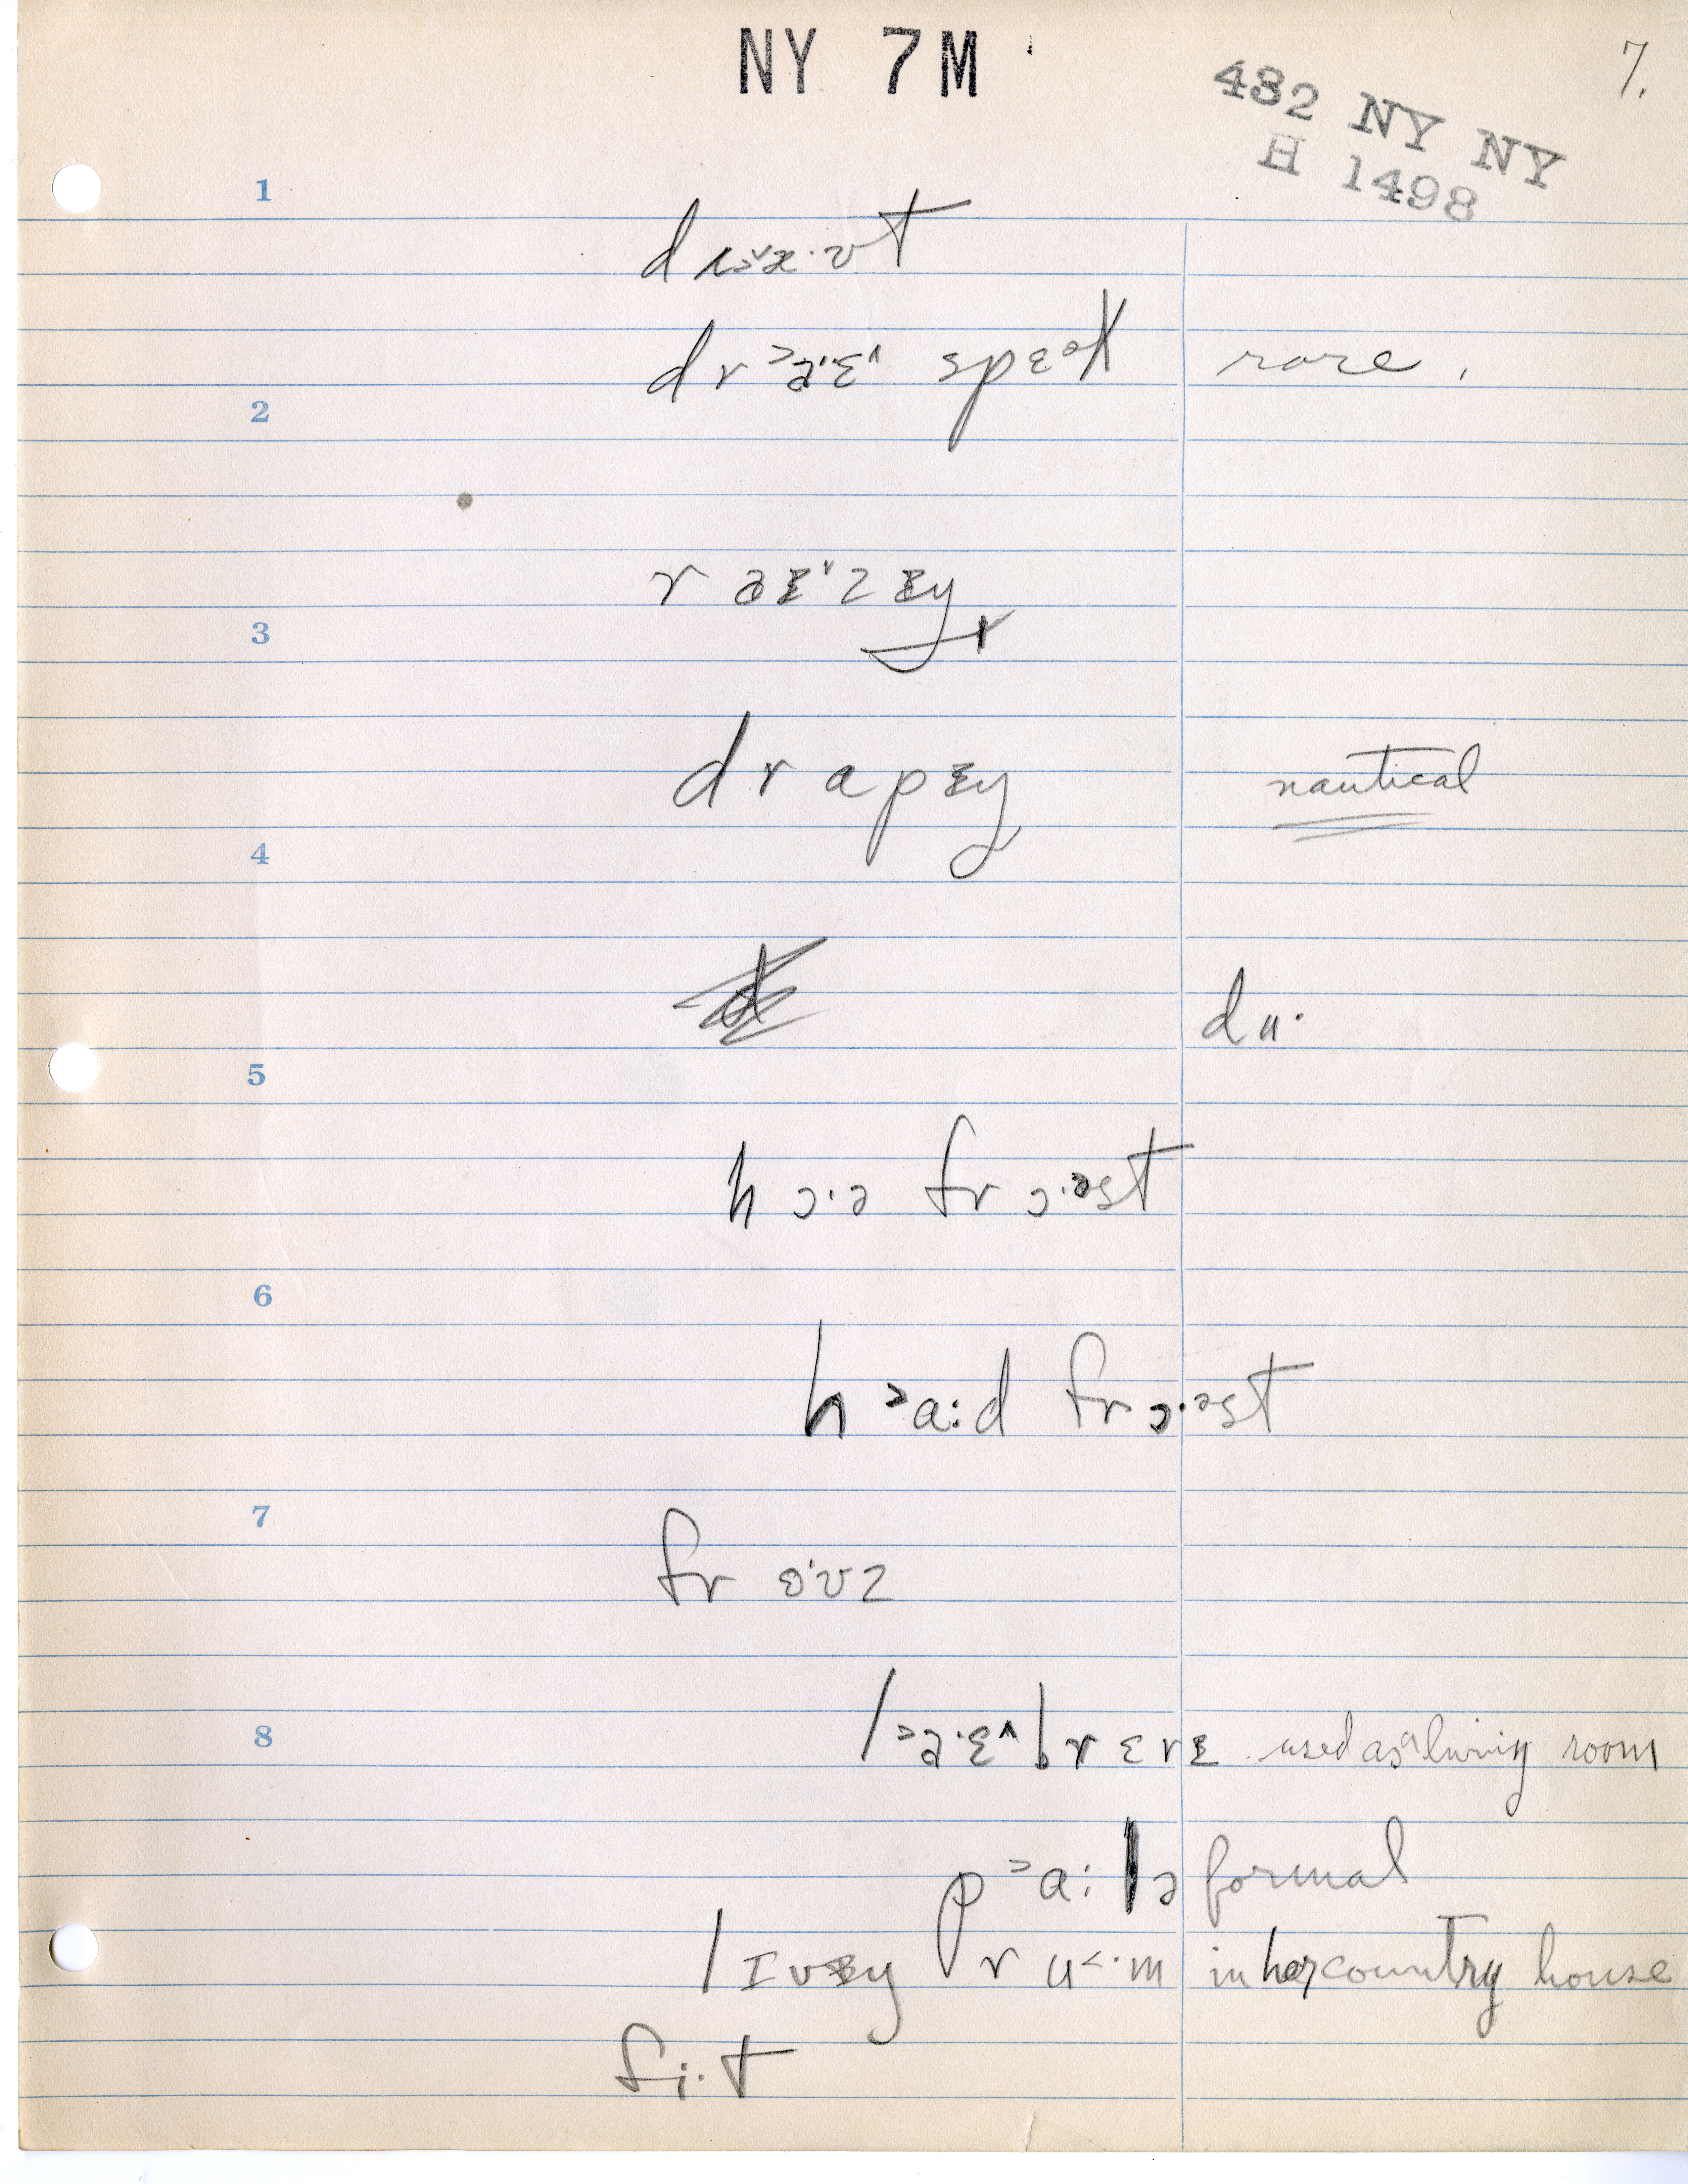 NY 7M
7.
432 NY NY
H 1498
1
dr
2
spɛət rare.
r
3
drapɪŋ nautical
4
du·
5
hɔ·ə frɔ·əst
6
h˃a:d frɔ·əst
7
frɵ·ʊz
8
l˃a·ɛ^brɛrɪ used as living room
p˃a:lə formal
lɪvɪŋ ru˂·m in her country house
fi·t